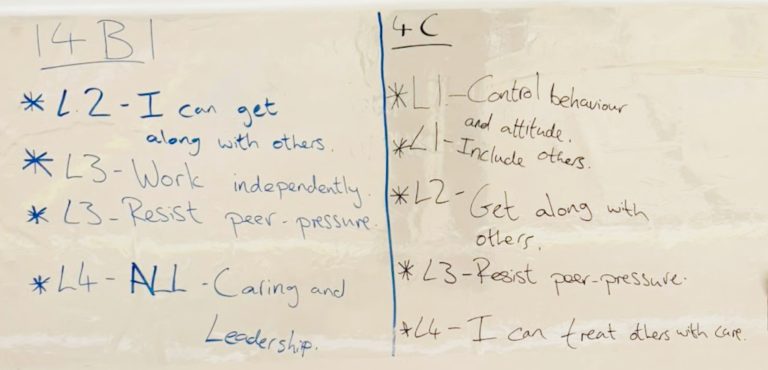 14B1
* L2 - I can get
along with others.
* L3 - Work independently.
* L3 - Resist peer-pressure.
* L4 - ALL - Caring and
Leadership.
4C
* L1 - Control behaviour
and attitude.
* L1 - Include others.
* L2 - Get along with
others.
* L3 - Resist peer-pressure.
* L4 - I can treat others with care.